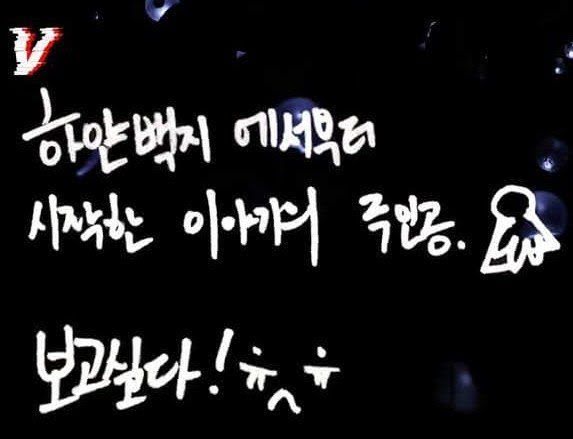 V
하얀백지 에서부터
시작한 이야기의 주인공.
보고싶다! ㅠ^ㅠ